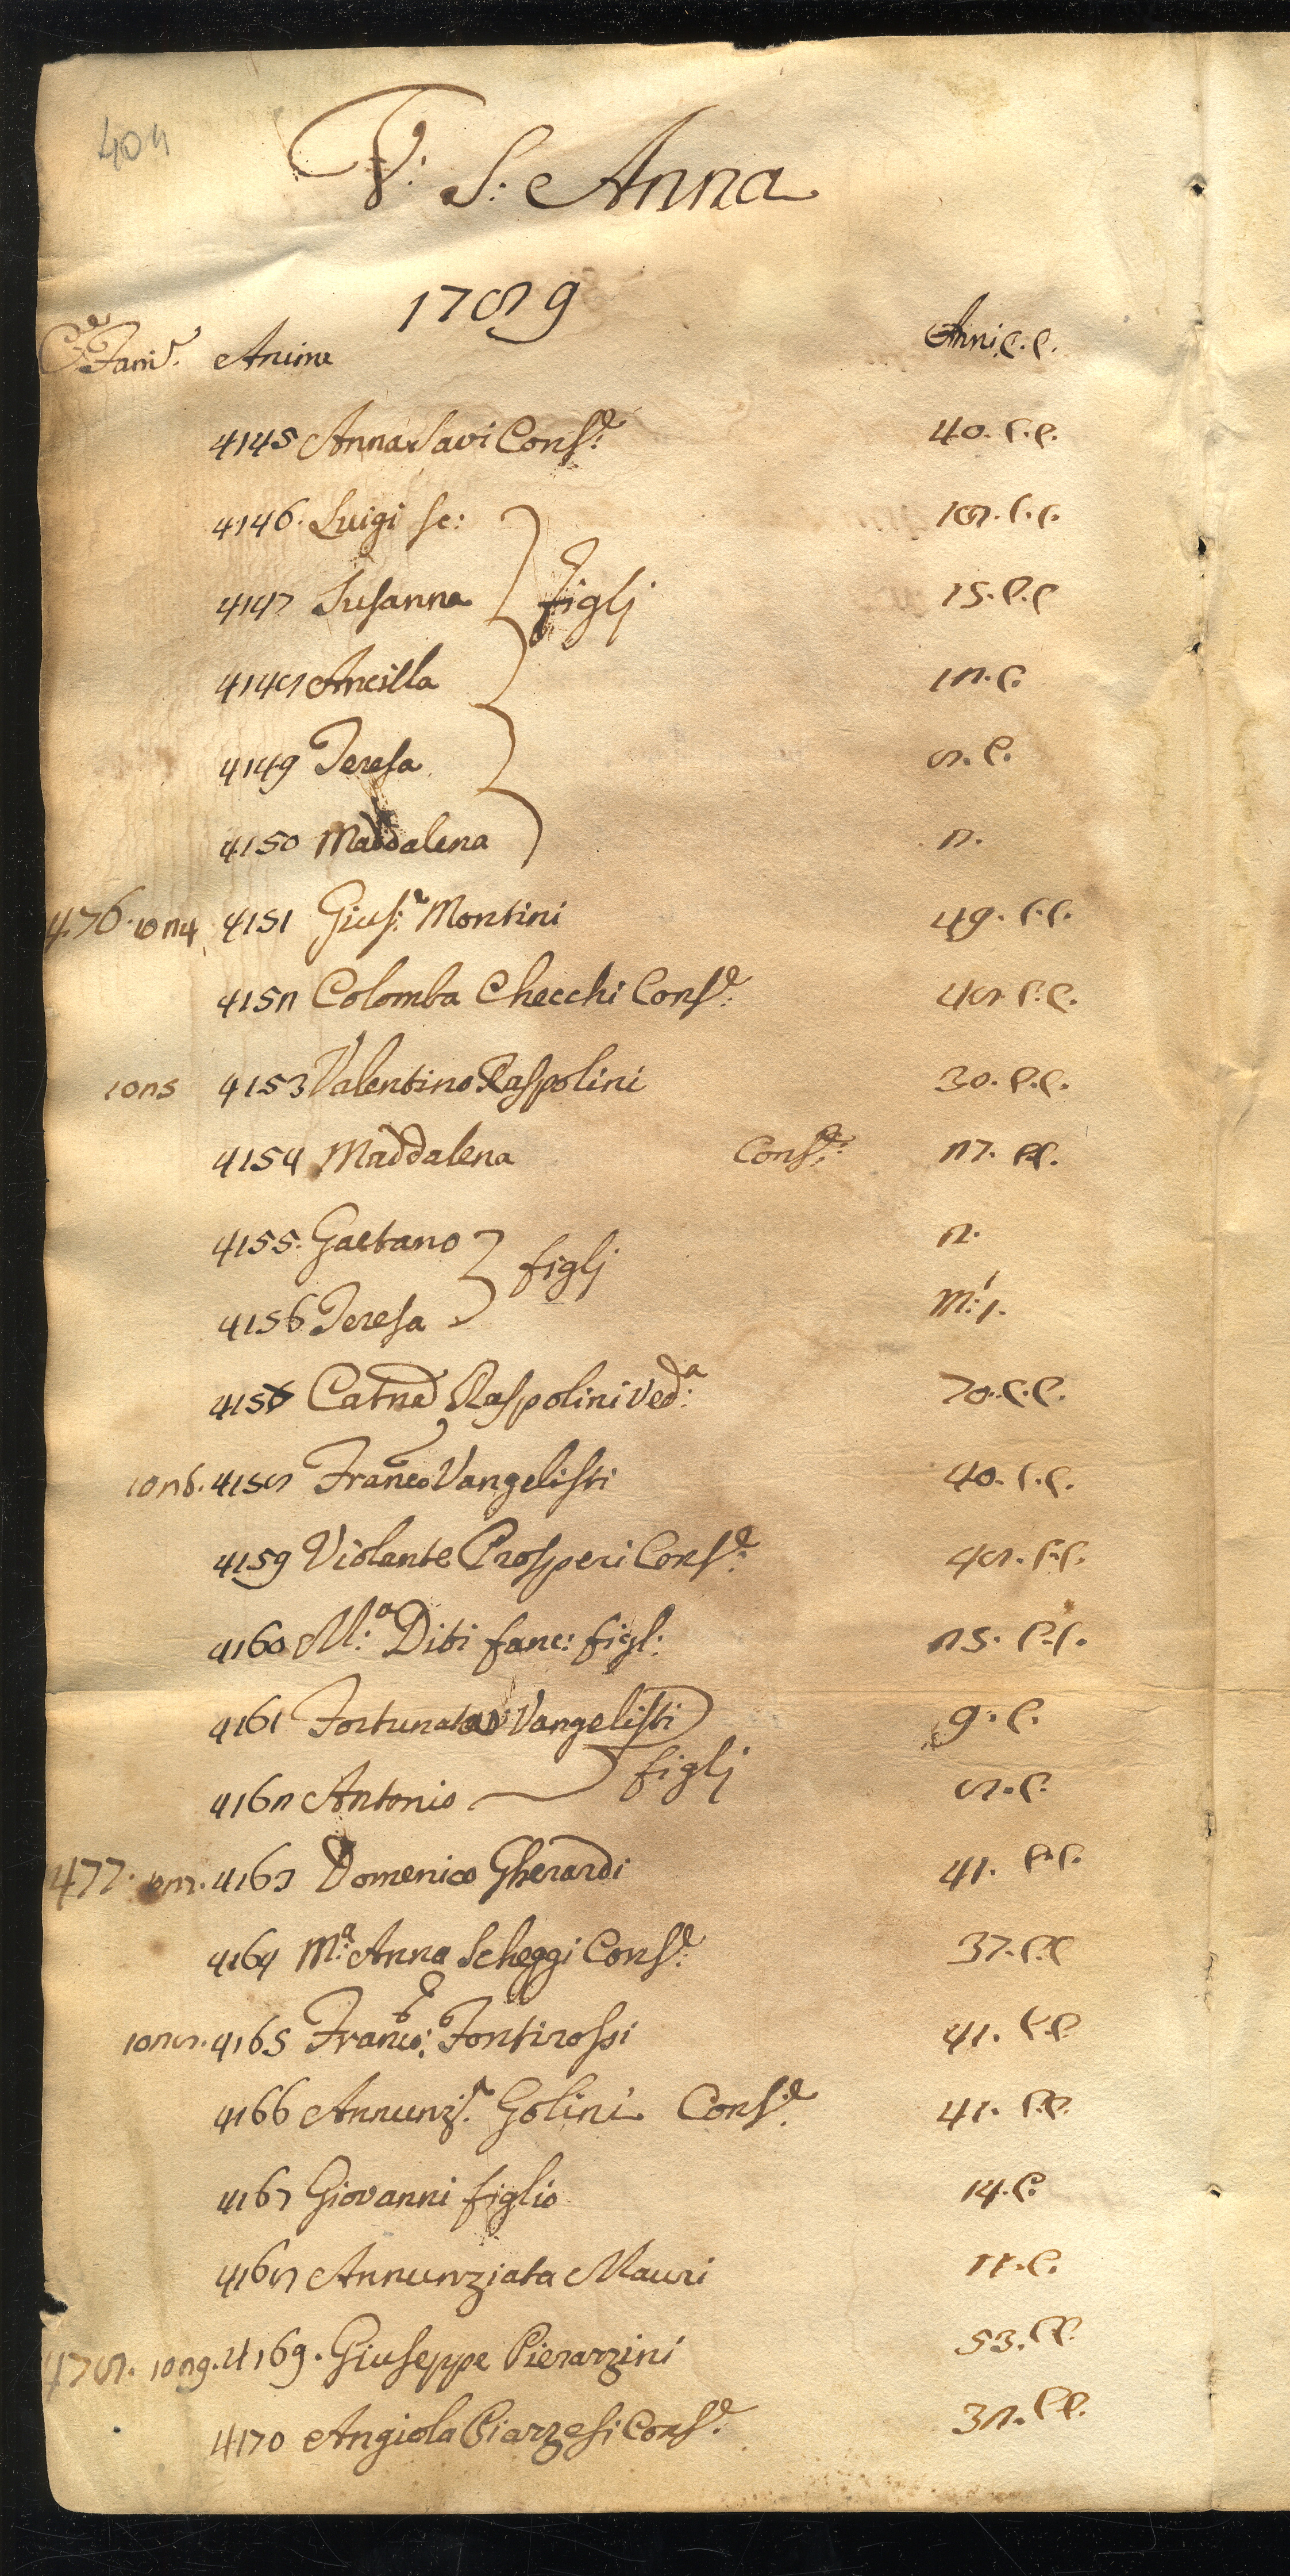 404
V: S: Anna
1789
C.e Fam.e Anime Anni C.C.
4145 Anna Savi Cons.e 40. C.C.
4146. Luigi Sc: 18. C.C.
4147 Susanna figlj 15. C.C
4148 Ancilla 12. C.
4149 Teresa 8. C.
4150 Maddalena 2.
476. 1024 4151 Gius.e Montini 49. C.C.
4152 Colomba Checchi Cons.e 48. C.C.
1025 4153 Valentino Raspolini 30. C.C.
4154 Maddalena Cons.e 27. C.C.
4155. Gaetano figlj 2.
4156 Teresa M: 1.
4157 Catna Raspolini Ved.a 70. C.C.
1026. 4158 Franco Vangelisti 40. C.C.
4159 Violante Prosperi Cons.e 48. C.C.
4160 M.a Diti fanc: figl: 25. C.C.
4161 Fortunata Vangelisti 9. C.
4162 Antonio figlj 8. C.
477. 1027. 4163 Domenico Gherardi 41. C.C.
4164 M.a Anna Scheggi Cons.e 37. C.C
1028. 4165 Franco: Fontirossi 41. C.C
4166 Annunz.a Golini Cons.e 41. C.C.
4167 Giovanni figlio 14. C.
4168 Annunziata Mauri 11. C.
478. 1029. 4169. Giuseppe Pierazzini 53. C.C.
4170 Angiola Piazzesi Cons.e 32. C.C.